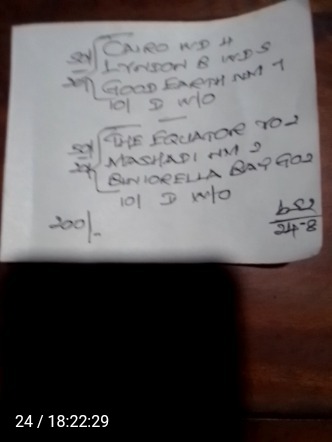 50/ CAIRO WD 4
LYNDON B WD 5
20/ GOOD EARTH NM 7
10/ D W/O
50/ THE EQUATOR YO 2
MASHADI NM 2
20/ BINIORELLA BAY GO2
10/ D W/O
200/-
24-8
24 / 18:22:29